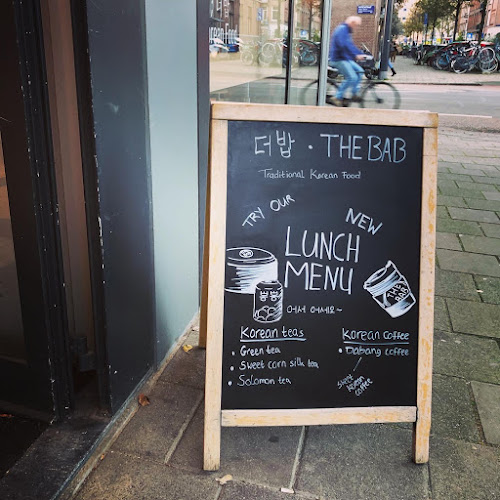 더밥 · THE BAB
Traditional Korean Food
TRY OUR
NEW
LUNCH
MENU
THE
BAB
어서 어세요~
Korean teas
• Green tea
• Sweet corn silk tea
• Solomon tea
Korean coffee
• Dabang coffee
Sweet
korean
coffee